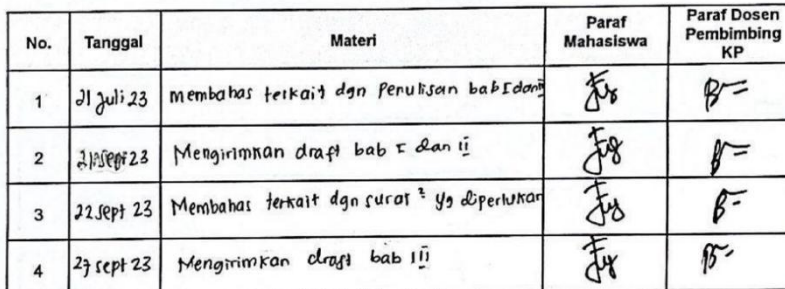 No. Tanggal Materi Paraf Mahasiswa Paraf Dosen Pembimbing KP
1 21 Juli 23 Membahas terkait dgn Penulisan bab I dan II
2 21 Sept 23 Mengirimkan draft bab I dan II
3 22 Sept 23 Membahas terkait dgn surat² yg diperlukan
4 27 sept 23 Mengirimkan draft bab III